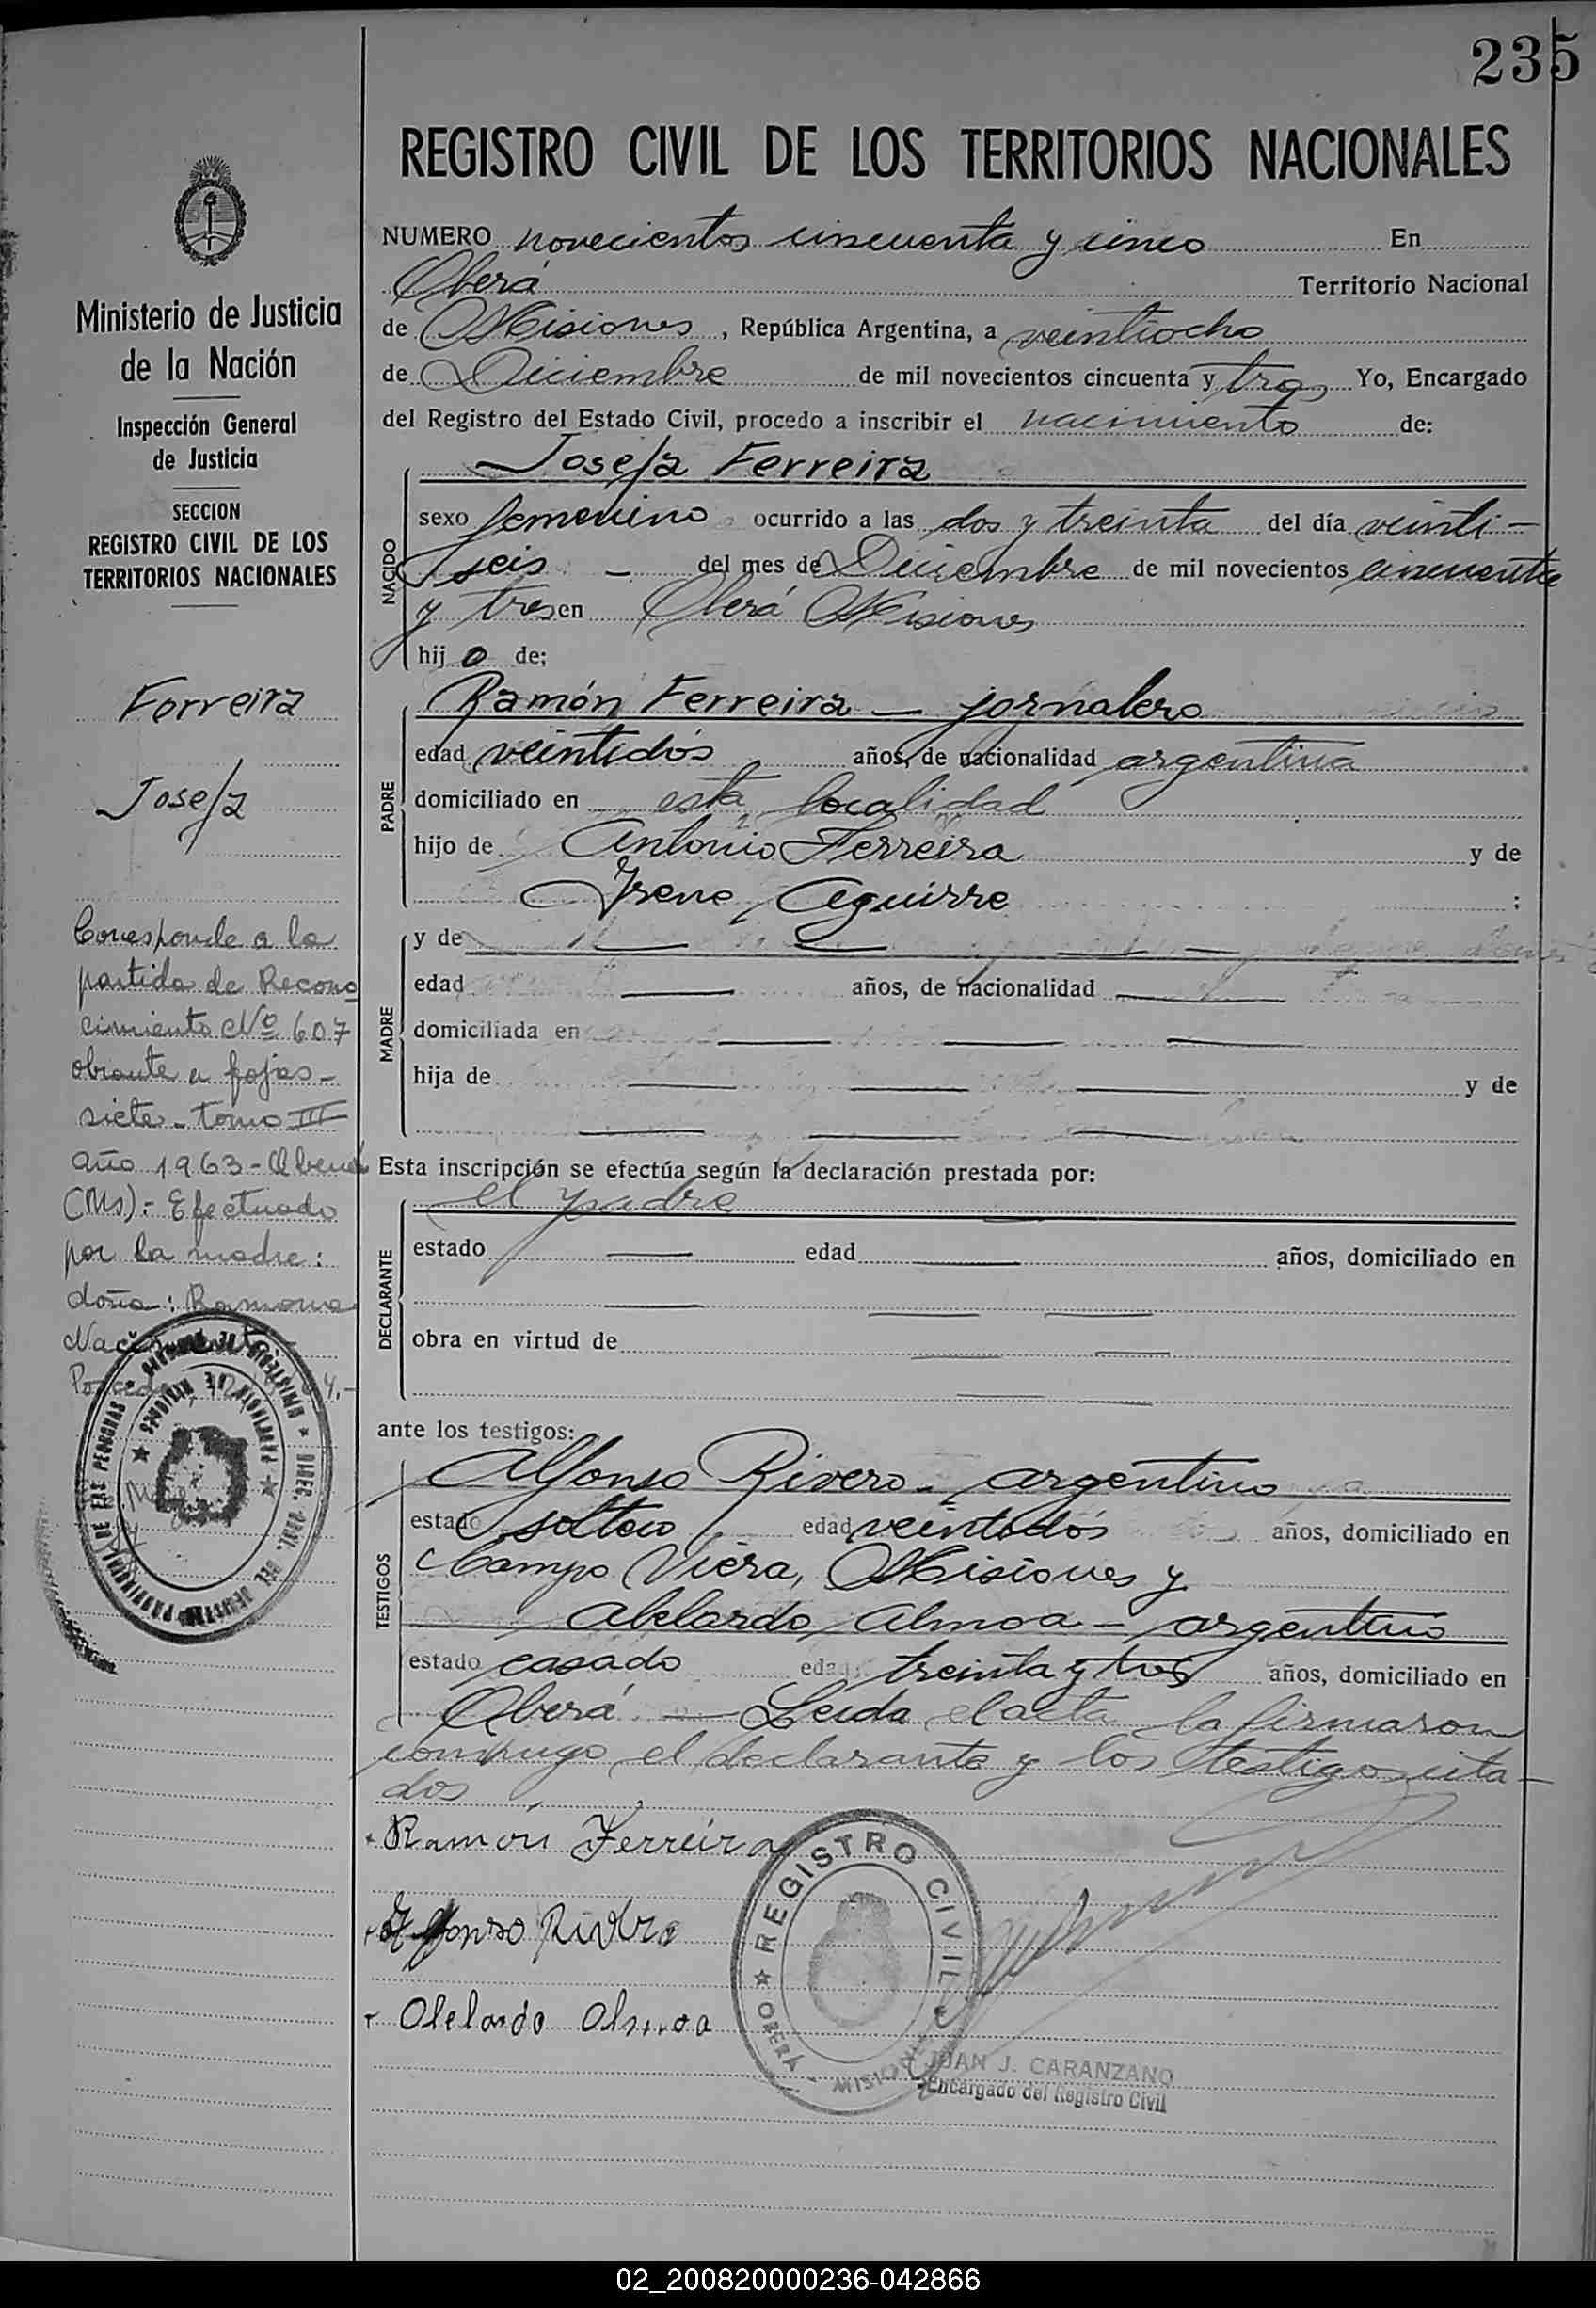 235
REGISTRO CIVIL DE LOS TERRITORIOS NACIONALES
Ministerio de Justicia
de la Nación
Inspección General
de Justicia
SECCION
REGISTRO CIVIL DE LOS
TERRITORIOS NACIONALES
Ferreira
Josefa
Corresponde a la
partida de Recono
cimiento Nº 607
obrante a fojas -
siete - tomo III
año 1963 - Oberá
(Ms) - Efectuado
por la madre:
doña: Ramona
NUMERO novecientos cincuenta y cinco En
Oberá Territorio Nacional
de Misiones, República Argentina, a veintiocho
de Diciembre de mil novecientos cincuenta y tres Yo, Encargado
del Registro del Estado Civil, procedo a inscribir el nacimiento de:
NACIDO
Josefa Ferreira
sexo femenino ocurrido a las dos y treinta del día veinti-
seis - del mes de Diciembre de mil novecientos cincuenta
y tres en Oberá Misiones
hij o de:
PADRE
Ramón Ferreira - jornalero
edad veintidós años, de nacionalidad argentina
domiciliado en esta localidad
hijo de Antonio Ferreira y de
Irene Aguirre ;
MADRE
y de
edad años, de nacionalidad
domiciliada en
hija de y de
Esta inscripción se efectúa según la declaración prestada por:
DECLARANTE
el padre
estado edad años, domiciliado en
obra en virtud de
ante los testigos:
TESTIGOS
Alfonso Rivero - argentino
estado soltero edad veintidós años, domiciliado en
Campo Viera, Misiones y
Abelardo Almoa - argentino
estado casado edad treinta y tres años, domiciliado en
Oberá - Leida el acta la firmaron
conmigo el declarante y los testigos cita-
dos
Ramón Ferreira
Alfonso Rivero
Abelardo Almoa
REGISTRO CIVIL
OBERÁ - MISIONES
JUAN J. CARANZANO
Encargado del Registro Civil
02_200820000236-042866